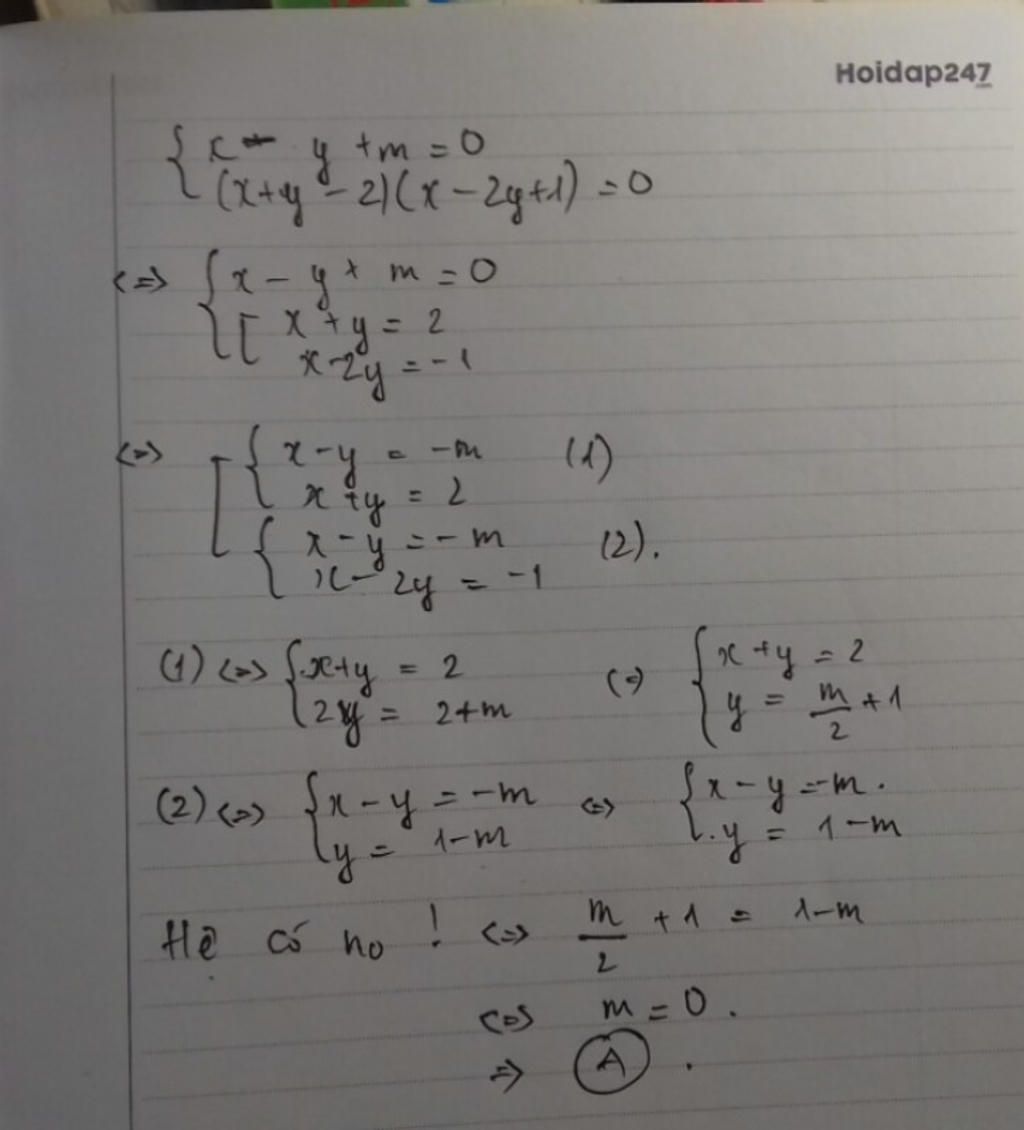 Hoidap247
{ x - y + m = 0
(x+y - 2)(x - 2y+1) = 0
<=> { x - y + m = 0
[ x + y = 2
x - 2y = -1
<=> [ { x - y = -m (1)
x + y = 2
{ x - y = - m (2).
x - 2y = -1
(1) <=> { x+y = 2 <=> { x + y = 2
2y = 2+m y = m/2 + 1
(2) <=> { x - y = -m <=> { x - y = -m.
y = 1-m y = 1-m
Hệ có no ! <=> m/2 + 1 = 1-m
<=> m = 0.
=> A.